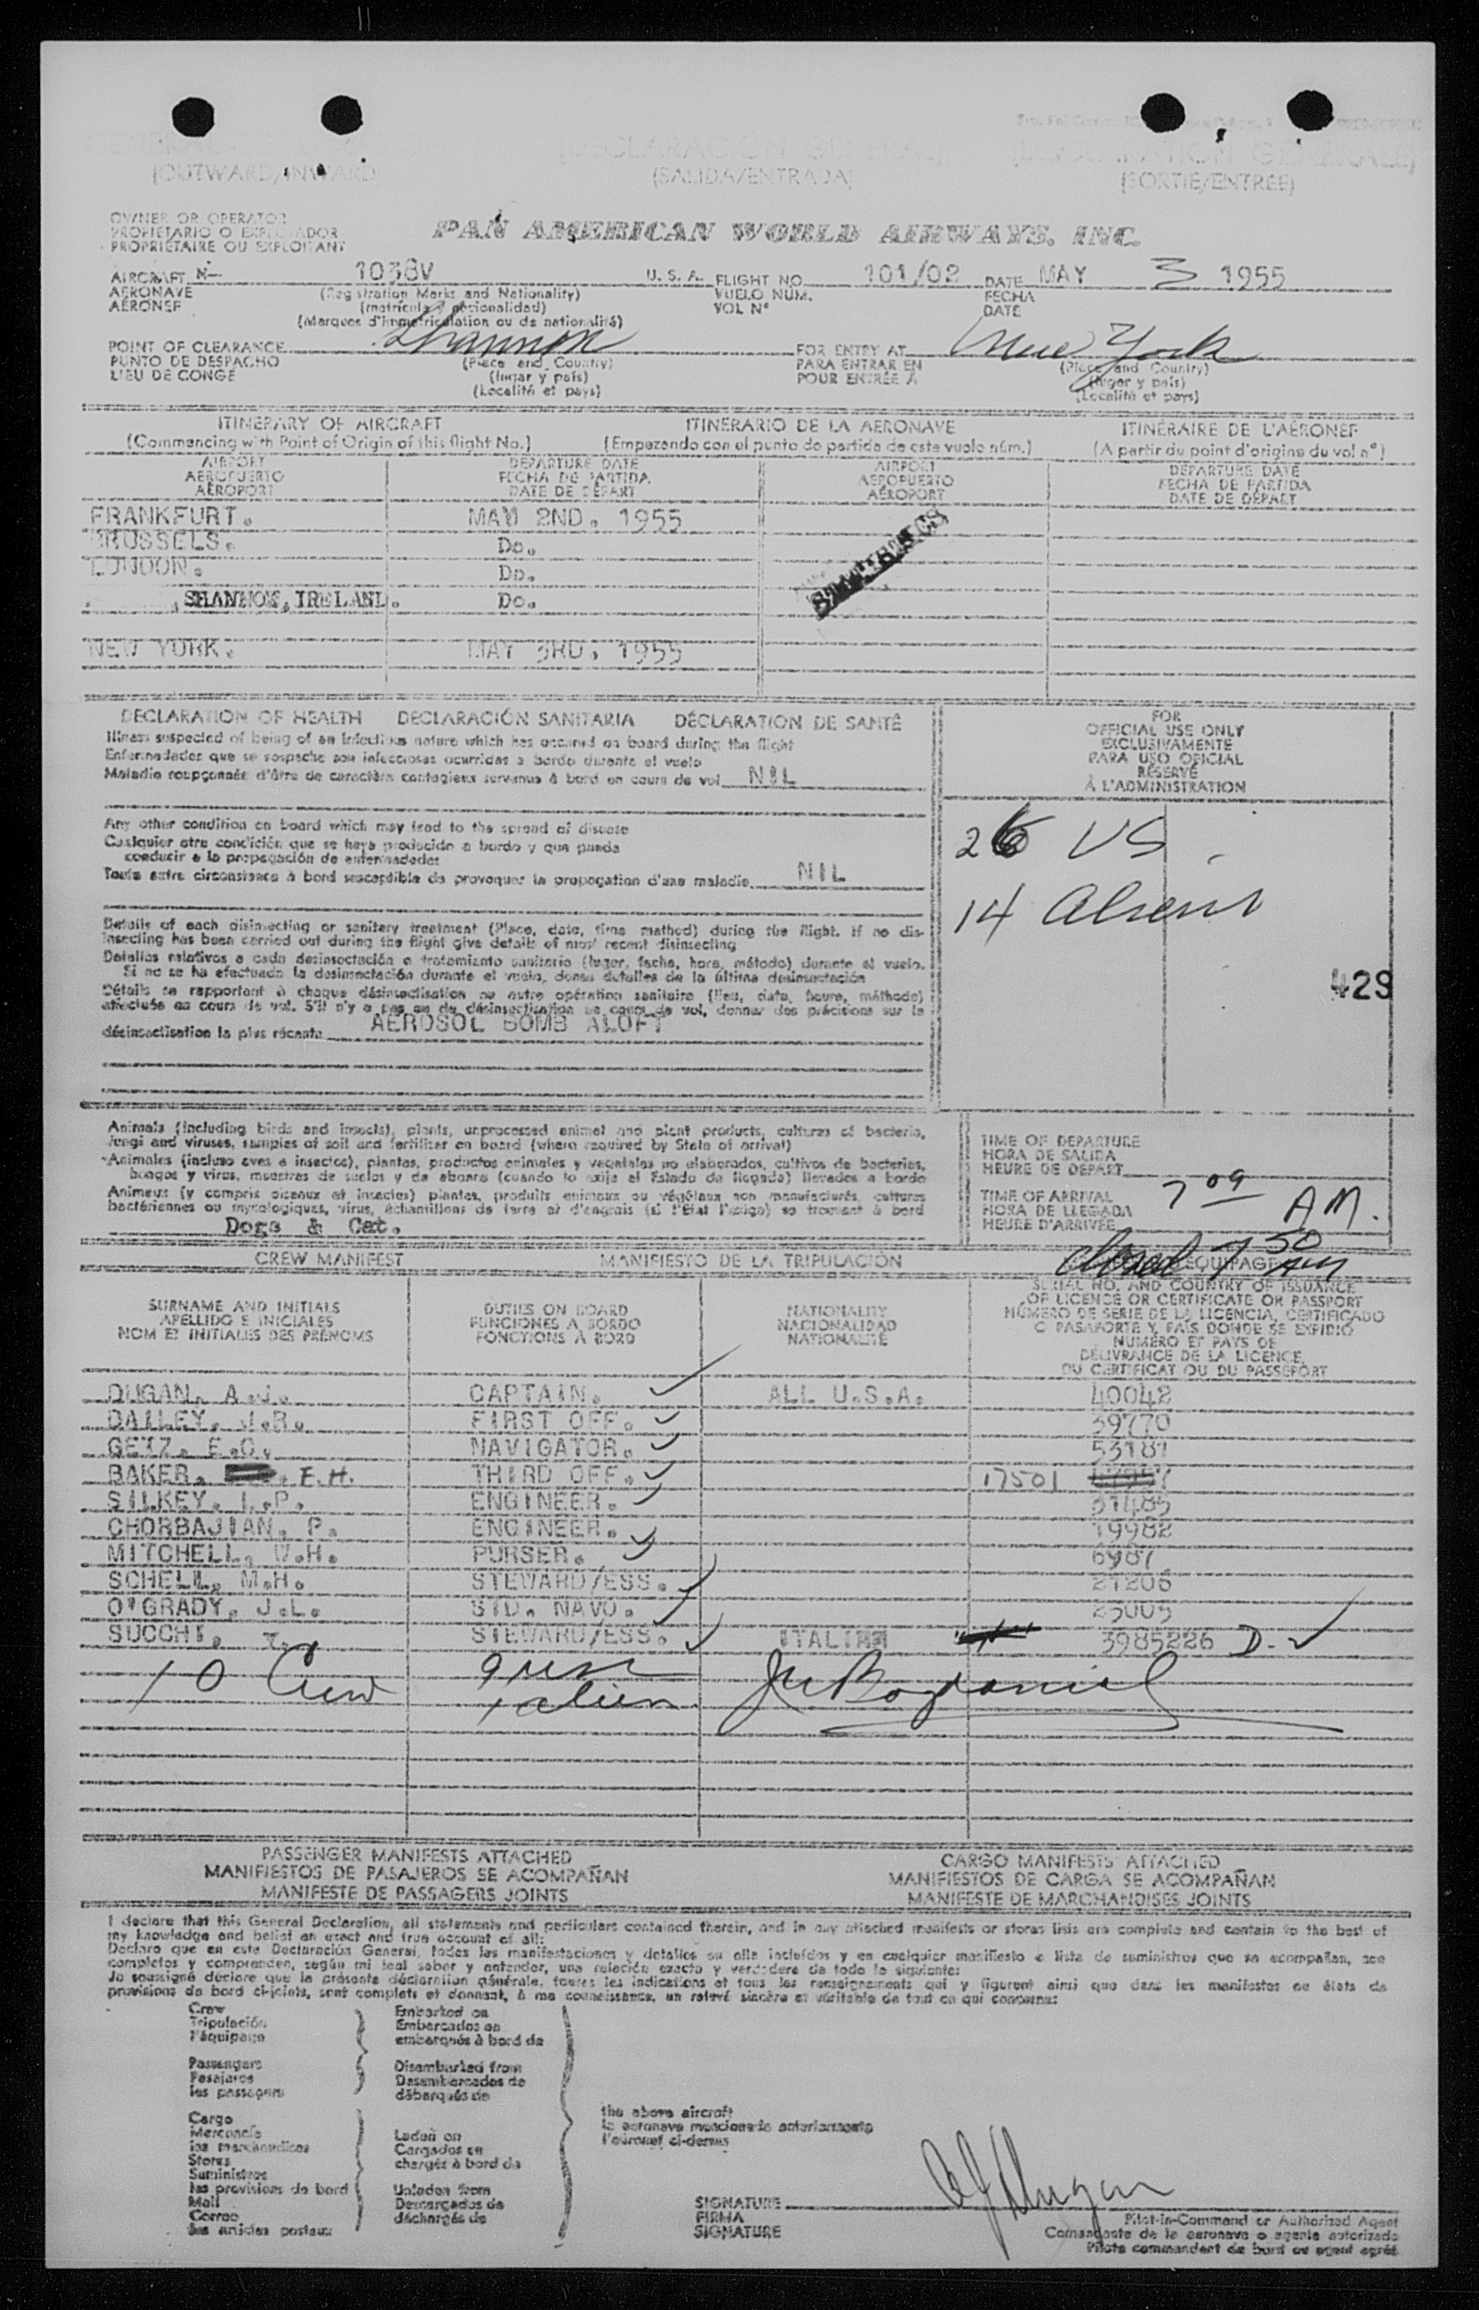 (OUTWARD/INWARD) (SALIDA/ENTRADA) (SORTIE/ENTREE)
OWNER OR OPERATOR
PROPIETARIO O EXPLOTADOR
PROPRIÉTAIRE OU EXPLOITANT
PAN AMERICAN WORLD AIRWAYS, INC.
AIRCRAFT N- 1038V U. S. A. FLIGHT NO. 101/02 DATE MAY 3 1955
AERONAVE (Registration Marks and Nationality) VUELO NUM. FECHA
AÉRONEF (matricula y nacionalidad) VOL N° DATE
(Marques d'immatriculation ou de nationalité)
POINT OF CLEARANCE Shannon FOR ENTRY AT New York
PUNTO DE DESPACHO (Place and Country) PARA ENTRAR EN (Place and Country)
LIEU DE CONGÉ (lugar y país) POUR ENTRÉE A (lugar y país)
(Localité et pays) (Localité et pays)
ITINERARY OF AIRCRAFT ITINERARIO DE LA AERONAVE ITINÉRAIRE DE L'AÉRONEF
(Commencing with Point of Origin of this flight No.) (Empezando con el punto de partida de este vuelo núm.) (A partir du point d'origine du vol n°)
AIRPORT DEPARTURE DATE AIRPORT DEPARTURE DATE
AEROPUERTO FECHA DE PARTIDA AEROPUERTO FECHA DE PARTIDA
AÉROPORT DATE DE DÉPART AÉROPORT DATE DE DÉPART
FRANKFURT. MAY 2ND. 1955
BRUSSELS. Do.
LONDON. Do.
SHANNON, IRELAND. Do.
NEW YORK. MAY 3RD, 1955
DECLARATION OF HEALTH DECLARACIÓN SANITARIA DÉCLARATION DE SANTÉ
Illness suspected of being of an infectious nature which has occurred on board during the flight
Enfermedades que se sospeche son infecciosas ocurridas a bordo durante el vuelo
Maladie soupçonnée d'être de caractère contagieux survenue à bord en cours de vol NIL
FOR
OFFICIAL USE ONLY
EXCLUSIVAMENTE
PARA USO OFICIAL
RÉSERVÉ
À L'ADMINISTRATION
Any other condition on board which may lead to the spread of disease
Cualquier otra condición que se haya producido a bordo y que pueda
conducir a la propagación de enfermedades
Toute autre circonstance à bord susceptible de provoquer la propagation d'une maladie NIL
26 US
14 Aliens
Details of each disinsecting or sanitary treatment (Place, date, time method) during the flight. If no dis-
insecting has been carried out during the flight give details of most recent disinsecting
Detalles relativos a cada desinsectación o tratamiento sanitario (lugar, fecha, hora, método) durante el vuelo.
Si no se ha efectuado la desinsectación durante el vuelo, dense detalles de la última desinsectación
Détails se rapportant à chaque désinsectisation ou autre opération sanitaire (lieu, date, heure, méthode)
effectuée au cours de vol. S'il n'y a pas eu de désinsectisation au cours de vol, donner des précisions sur la
désinsectisation la plus récente AEROSOL BOMB ALOFT
429
Animals (including birds and insects), plants, unprocessed animal and plant products, cultures of bacteria,
fungi and viruses, samples of soil and fertilizer on board (where required by State of arrival)
Animales (incluso aves e insectos), plantas, productos animales y vegetales no elaborados, cultivos de bacterias,
hongos y virus, muestras de suelos y de abono (cuando lo exija el Estado de llegada) llevados a bordo
Animaux (y compris oiseaux et insectes) plantes, produits animaux ou végétaux non manufacturés, cultures
bactériennes ou mycologiques, virus, échantillons de terre et d'engrais (si l'État l'exige) se trouvant à bord
Dogs & Cat.
TIME OF DEPARTURE
HORA DE SALIDA
HEURE DE DÉPART
TIME OF ARRIVAL
HORA DE LLEGADA
HEURE D'ARRIVÉE
7 09 AM.
closed 7 50 AM
CREW MANIFEST MANIFIESTO DE LA TRIPULACIÓN EQUIPAGE
SURNAME AND INITIALS DUTIES ON BOARD NATIONALITY SERIAL NO. AND COUNTRY OF ISSUANCE
APELLIDO E INICIALES FUNCIONES A BORDO NACIONALIDAD OF LICENCE OR CERTIFICATE OR PASSPORT
NOM ET INITIALES DES PRÉNOMS FONCTIONS À BORD NATIONALITÉ NÚMERO DE SERIE DE LA LICENCIA, CERTIFICADO
O PASAPORTE Y PAÍS DONDE SE EXPIDIO
NUMÉRO ET PAYS DE
DÉLIVRANCE DE LA LICENCE,
DU CERTIFICAT OU DU PASSEPORT
DUGAN, A.J. CAPTAIN. ALL U.S.A. 40042
DAILEY, J.R. FIRST OFF. 39770
GETZ, E.C. NAVIGATOR. 53181
BAKER, E.H. THIRD OFF. 17501
SILKEY, I.P. ENGINEER. 31485
CHORBAJIAN, P. ENGINEER. 19982
MITCHELL, W.H. PURSER. 6987
SCHELL, M.H. STEWARD/ESS. 21206
O'GRADY, J.L. STD. NAVO. 25005
SUCCHI, STEWARD/ESS. ITALIAN 3985226 D.
10 Crew 9 USA
1 alien
PASSENGER MANIFESTS ATTACHED CARGO MANIFESTS ATTACHED
MANIFIESTOS DE PASAJEROS SE ACOMPAÑAN MANIFIESTOS DE CARGA SE ACOMPAÑAN
MANIFESTE DE PASSAGERS JOINTS MANIFESTE DE MARCHANDISES JOINTS
I declare that this General Declaration, all statements and particulars contained therein, and in any attached manifests or stores lists are complete and contain to the best of
my knowledge and belief an exact and true account of all:
Declaro que en esta Declaración General, todas las manifestaciones y detalles en ella incluídos y en cualquier manifiesto o lista de suministros que se acompañan, son
completos y comprenden, según mi leal saber y entender, una relación exacta y verdadera de todo lo siguiente:
Je soussigné déclare que la présente déclaration générale, toutes les indications et tous les renseignements qui y figurent ainsi que dans les manifestes ou états de
provisions de bord ci-joints, sont complets et donnent, à ma connaissance, un relevé sincère et véritable de tout ce qui concerne:
Crew Embarked on
Tripulación Embarcados en
l'équipage embarqués à bord de
Passengers Disembarked from
Pasajeros Desembarcados de
les passagers débarqués de
the above aircraft
la aeronave mencionada anteriormente
l'aéronef ci-dessus
Cargo
Mercancía Laden on
les marchandises Cargados en
Stores chargés à bord de
Suministros
les provisions de bord Unladen from
Mail Descargados de
Correo déchargés de
les articles postaux
SIGNATURE A J Dugan
FIRMA Pilot-in-Command or Authorized Agent
SIGNATURE Comandante de la aeronave o agente autorizado
Pilote commandant de bord ou agent agréé